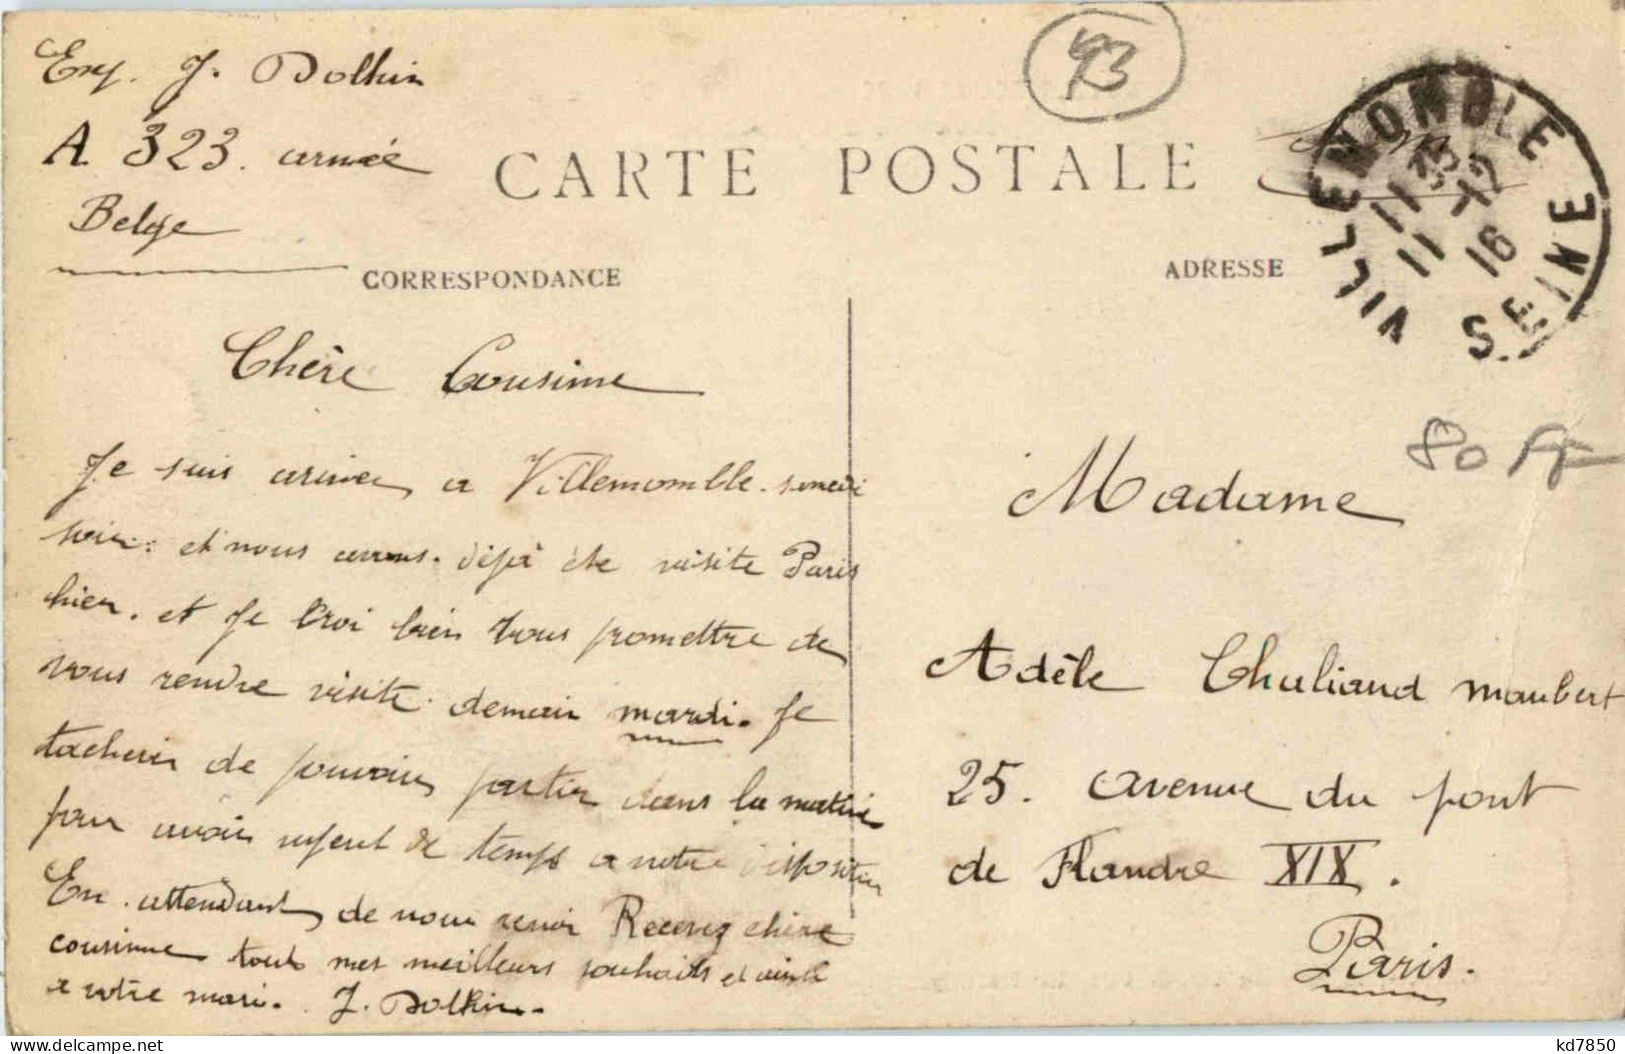 Exp. J. Dolhin
A 323. armée
Belge
93
CARTE POSTALE
CORRESPONDANCE
ADRESSE
VILLEMOMBLE SEINE
11 35
11 -12
16
80
Chère Cousinne
Je suis arriver a Villemomble. samedi
soir: et nous avons. déjà été visite Paris
hier. et Je Croi bien vous promettre de
vous rendre visite demain mardi. Je
tacherer de pouvoir partir dans la matiné
pour avoir de temps a notre disposition
En attendant de nous revoir Recevez chère
cousinne tout mes meilleurs souhaits et ainsi
a votre mari. J. Dolhin.
Madame
Adèle Chuliand maubert
25. avenue du pont
de Flandre XIX.
Paris.
kd7850